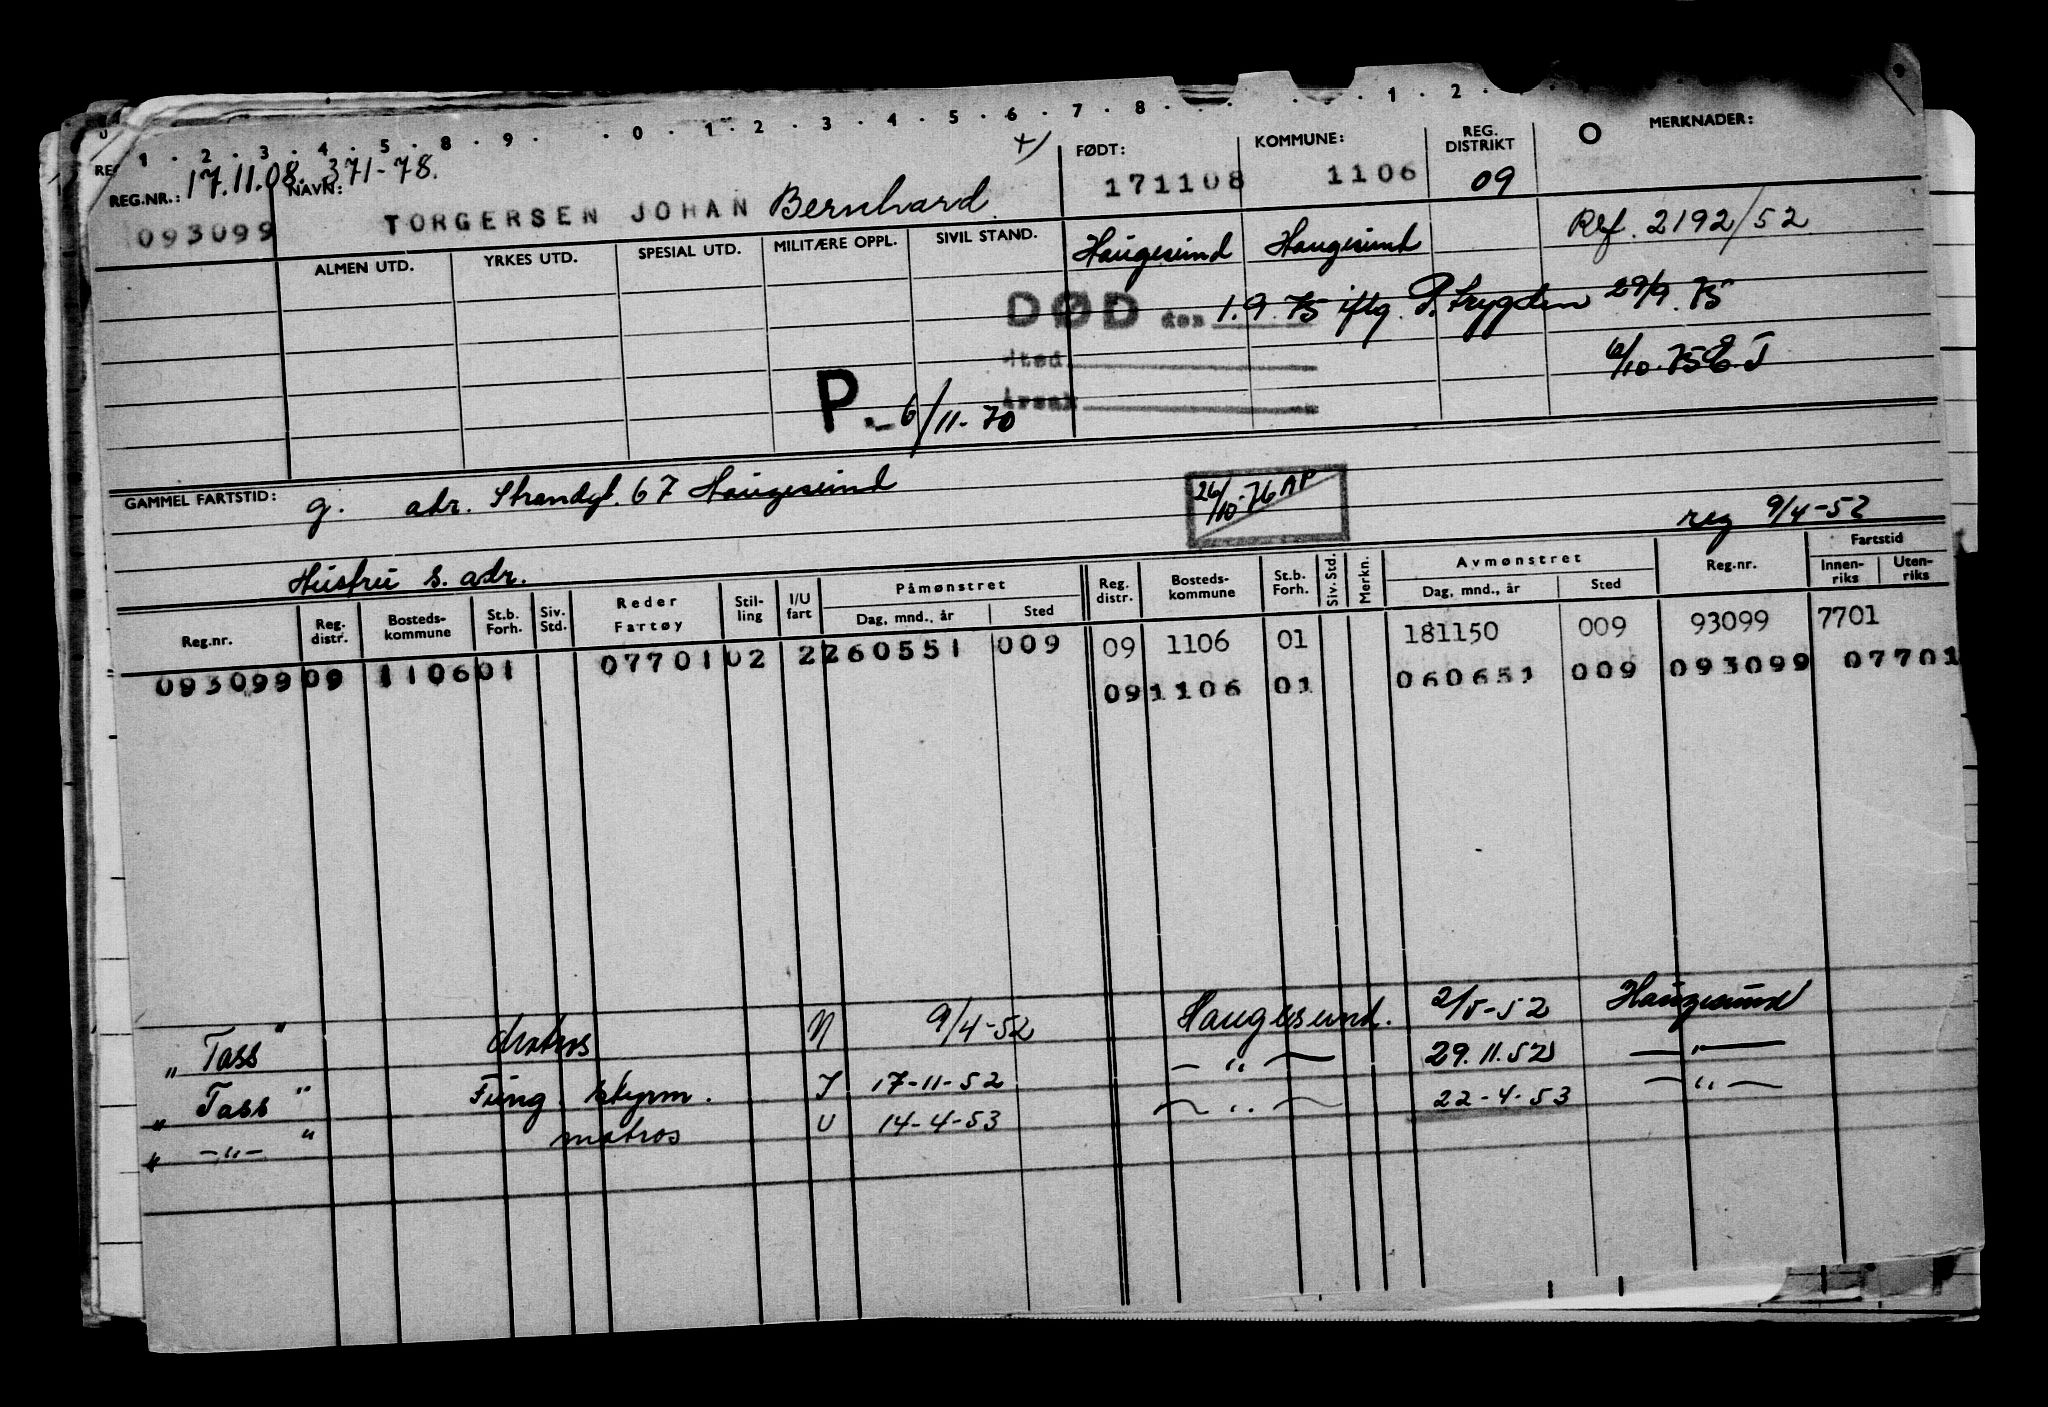 1 . 2 . 3 . 4 . 5 . 8 . 9 . . 0 . 1 . 2 . 3 . 4 . 5 . 6 . 7 . 8 . . . 1 . 2 .
REG.NR.: 17.11.08. 371-78. NAVN: FØDT: KOMMUNE: REG. DISTRIKT MERKNADER:
093099 TORGERSEN JOHAN Bernhard. 171108 1106 09
ALMEN UTD. YRKES UTD. SPESIAL UTD. MILITÆRE OPPL. SIVIL STAND. Haugesund Haugesund Ref. 2192/52
DØD den 1.9.75 iflg. P. trygden 29/9.75
sted
6/10.75 E.J
Årsak
P. 6/11-70
GAMMEL FARTSTID: g. adr. Strandgt. 67 Haugesund
26/10-76 AP
reg 9/4-52
Hustru s. adr.
Reg.nr. Reg. distr. Bosteds-kommune St.b. Forh. Siv. Std. Reder Fartøy Stil-ling I/U fart Påmønstret Dag, mnd., år Sted Reg. distr. Bosteds-kommune St.b. Forh. Siv. Std. Merkn. Avmønstret Dag, mnd., år Sted Reg.nr. Fartstid Innen-riks Uten-riks
09 1106 01 181150 009 93099 7701
093099 09 1106 01 07701 02 2 260551 009 09 1106 01 060651 009 093099 07701
" Tass " Matros N 9/4-52 Haugesund. 2/5-52 Haugesund
" Tass " Fung. styrm. I 17-11-52 — " — 29.11.52 — " —
" —"— " matros U 14-4-53 — " — 22-4-53 — " —